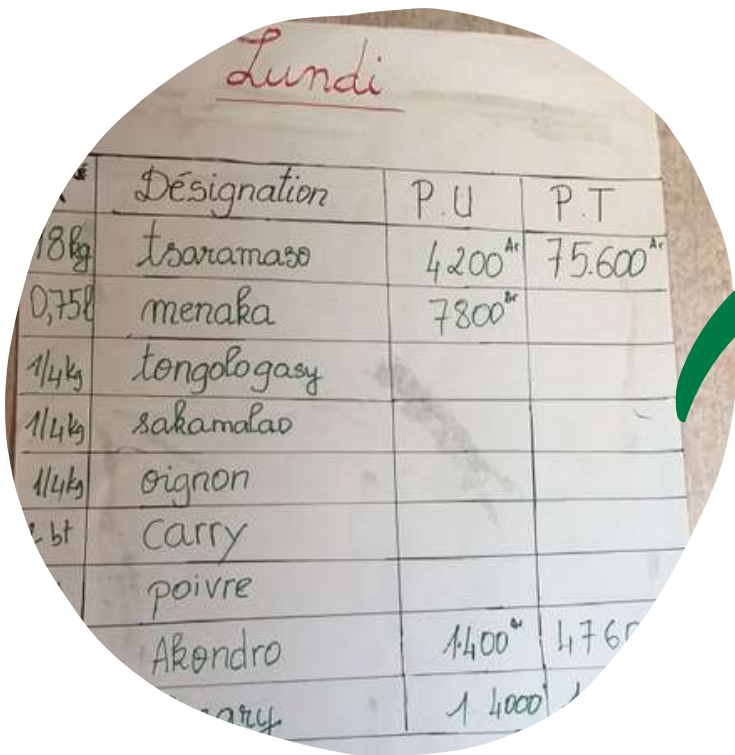 Lundi
Désignation P.U P.T
18kg tsaramaso 4200 Ar 75.600 Ar
0,75l menaka 7800 Ar
1/4kg tongologasy
1/4kg sakamalao
1/4kg oignon
bt Carry
poivre
Akondro 1.400 Ar